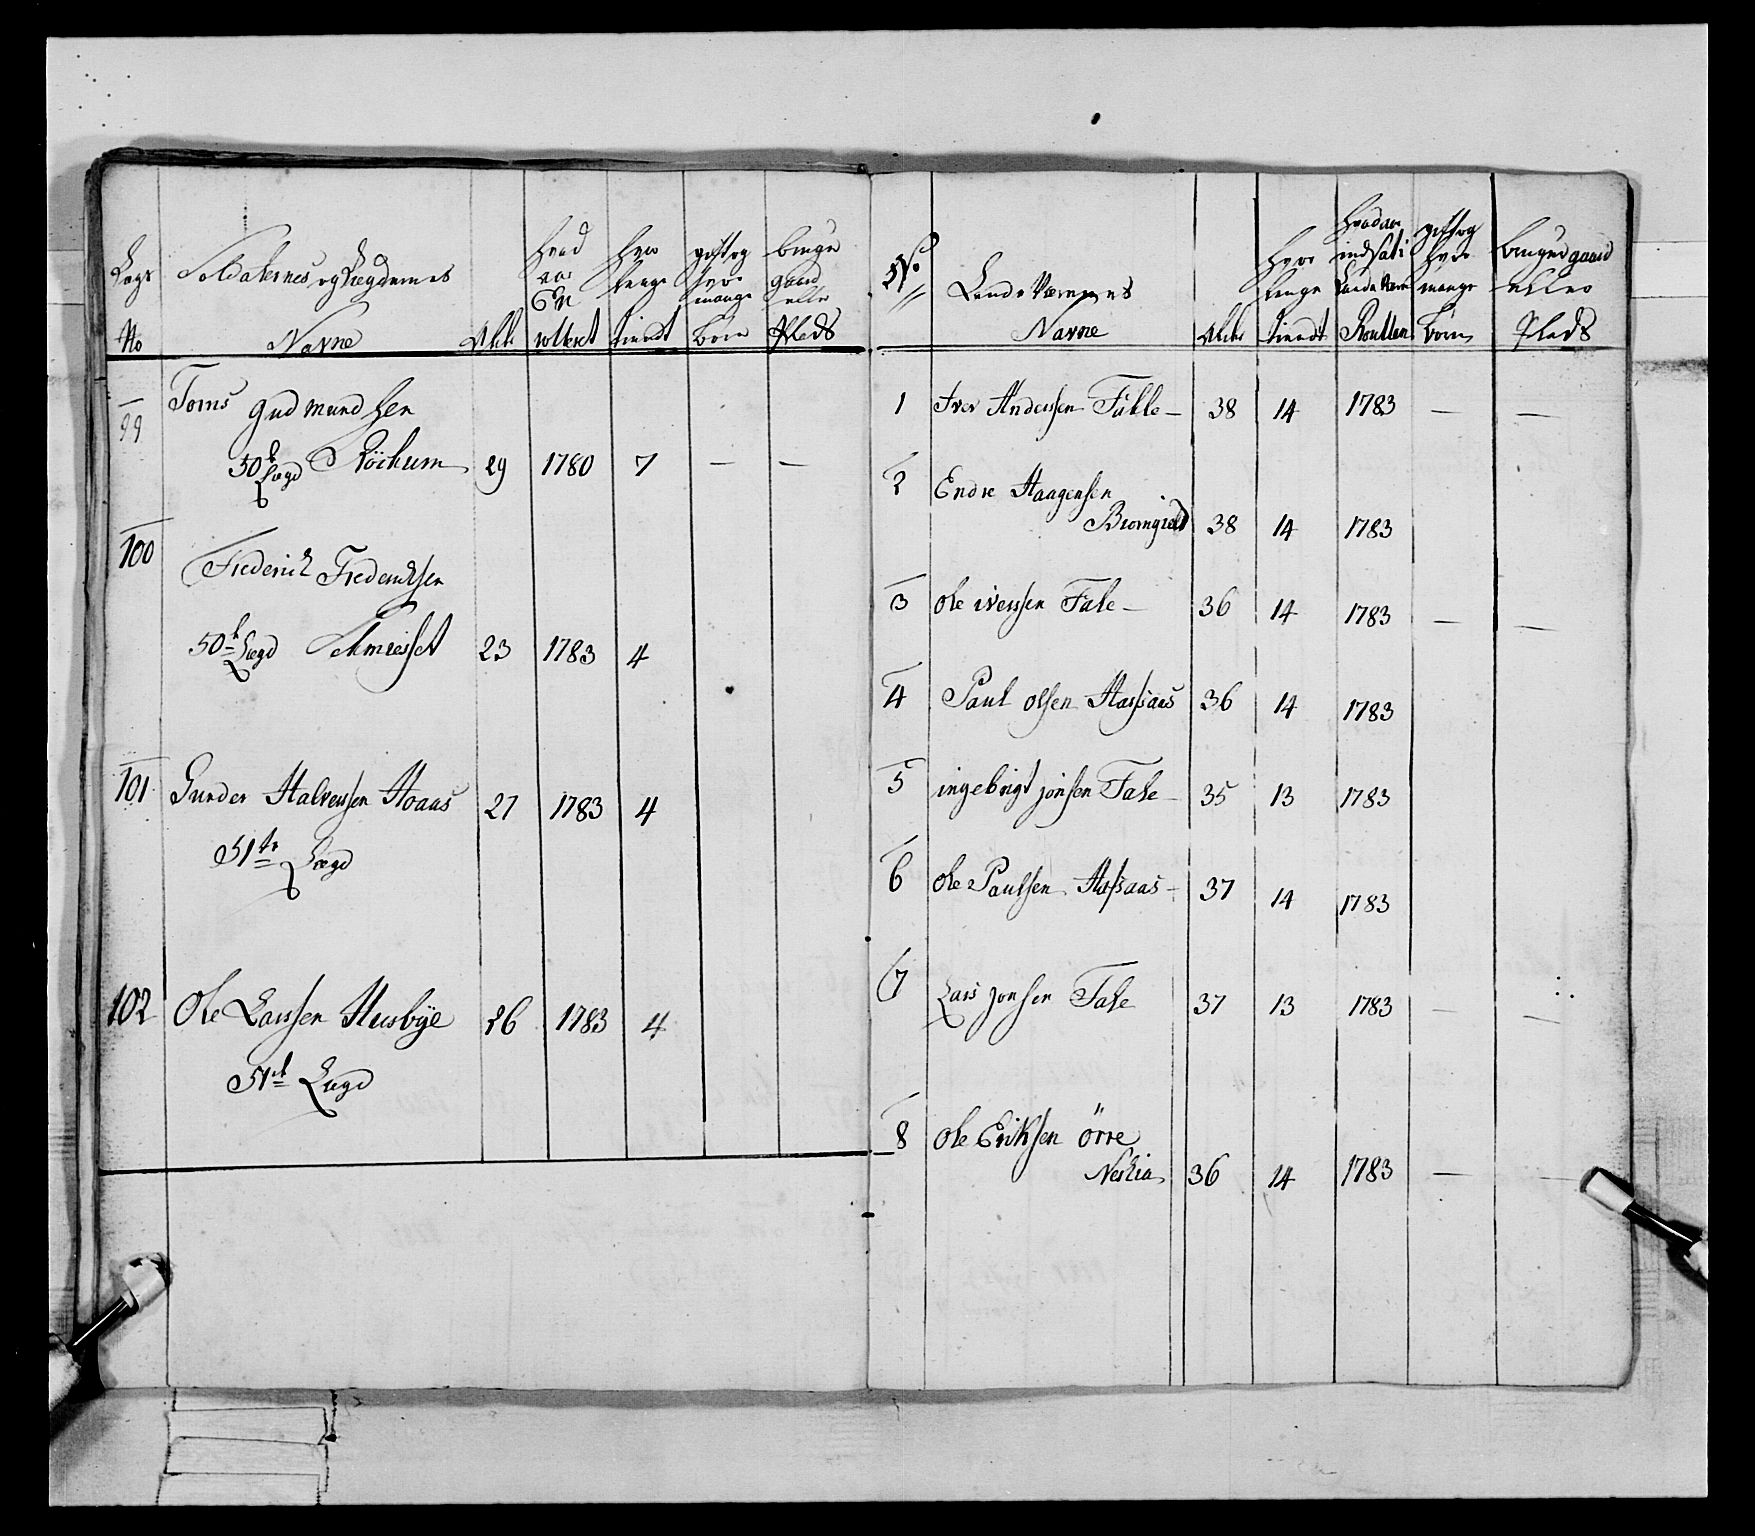 Lægs No
Soldaternes og Lægdernes Navne
Alder
hvad aar Een rolleret
hvor lenge tiendt
gift og hvor mange Børn
bruger gaard eller Plads
99
Toms Gudmundsen
50de Lægd Röckum 29 1780 7 — —
100
Frederick Fredericksen
50de Lægd Schmeisset 23 1783 4
101 Gunder Halvorsen Hoaas 27 1783 4
51te Lægd
102 Ole Larssen Husbÿe 26 1783 4
51de Lægd
No
Lande Værnens Navne
Alder
hvor lenge tiendt
hvad aar indsat i Lande Værn Roullen
gift og hvor mange børn
bruger gaard eller Plads
1 Iver Andersen Fahle — 38 14 1783 — —
2 Endre Haagensen
38 14 1783
3 Ole iversen Fale — 36 14 1783 — —
4 Paul Olsen 36 14 1783
5 ingebrigt jonsen Fale — 35 13 1783
6 Ole Paulsen 37 14 1783
7 Lars jonsen Fale 37 13 1783 — —
8 Ole Eriksen örre
36 14 1783 — —